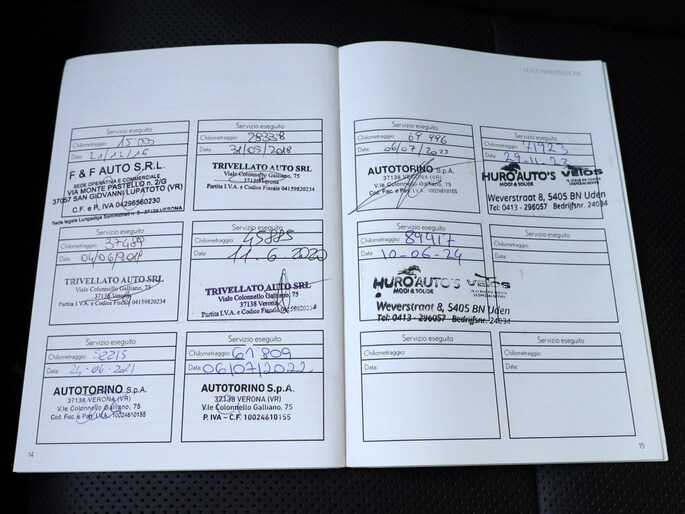 Servizio eseguito
Chilometraggio: 15000
Data: 21/12/16
F & F AUTO S.R.L.
SEDE OPERATIVA E COMMERCIALE
VIA MONTE PASTELLO n. 2/G
37057 SAN GIOVANNI LUPATOTO (VR)
C.F. e P. IVA 04296560230
Sede legale Lungadige
3 - 37139 VERONA
Servizio eseguito
Chilometraggio: 28338
Data: 31/05/2018
TRIVELLATO AUTO SRL
Viale Colonnello Galliano, 75
37138 Verona
Partita I.V.A. e Codice Fiscale 04159820234
Servizio eseguito
Chilometraggio: 37489
Data: 04/06/2019
TRIVELLATO AUTO SRL
Viale Colonnello Galliano, 75
37138 Verona
Partita I.V.A. e Codice Fiscale 04159820234
Servizio eseguito
Chilometraggio: 45885
Data: 11.6.2020
TRIVELLATO AUTO SRL
Viale Colonnello Galliano, 75
37138 Verona
Partita I.V.A. e Codice Fiscale 04159820234
Servizio eseguito
Chilometraggio: 52215
Data: 24-06-2021
AUTOTORINO S.p.A.
37138 VERONA (VR)
V.le Colonnello Galliano, 75
Cod. Fisc. e Part. I.V.A. 10024610155
Servizio eseguito
Chilometraggio: 61809
Data: 06/07/2022
AUTOTORINO S.p.A.
37138 VERONA (VR)
V.le Colonnello Galliano, 75
P. IVA - C.F. 10024610155
14
Servizio eseguito
Chilometraggio: 69996
Data: 06/07/2023
AUTOTORINO S.p.A.
37138 VERONA (VR)
V.le Colonnello Galliano, 75
Cod. Fisc. e Part. I.V.A. 10024610155
Servizio eseguito
Chilometraggio: 71923
Data: 29-11-23
HURO AUTO'S
MOOI & SOLIDE
Velos
Weverstraat 8, 5405 BN Uden
Tel: 0413 - 296057 Bedrijfsnr. 24034
Servizio eseguito
Chilometraggio: 89417
Data: 10-06-24
HURO AUTO'S
MOOI & SOLIDE
Velos
Weverstraat 8, 5405 BN Uden
Tel: 0413 - 296057 Bedrijfsnr. 24034
Servizio eseguito
Chilometraggio:
Data:
Servizio eseguito
Chilometraggio:
Data:
Servizio eseguito
Chilometraggio:
Data:
15